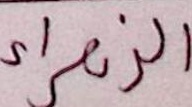 الزهراء